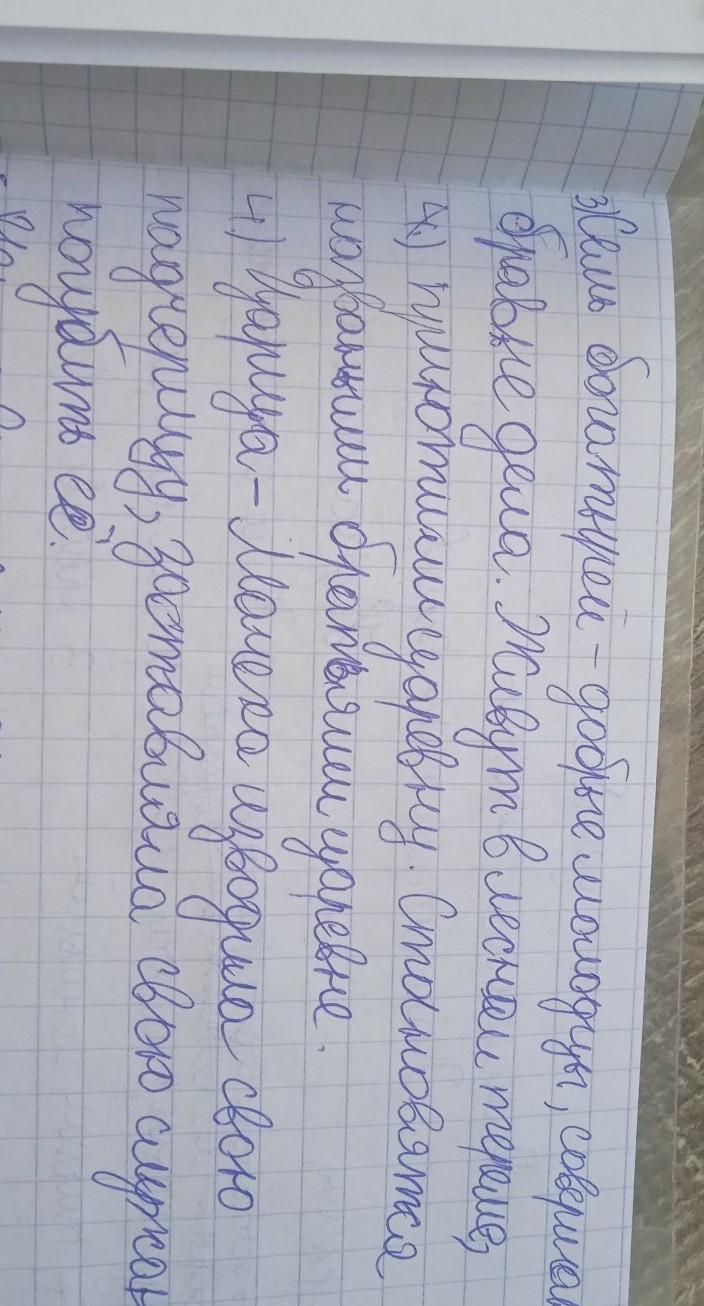 3) Семь богатырей - добрые молодцы, совершают
бравые дела. Живут в лесном тереме,
4) приютили царевну. Становятся
назваными братьями царевне.
4.) Царица - Мачеха изводила свою
падчерицу, заставляла свою
погубить её.